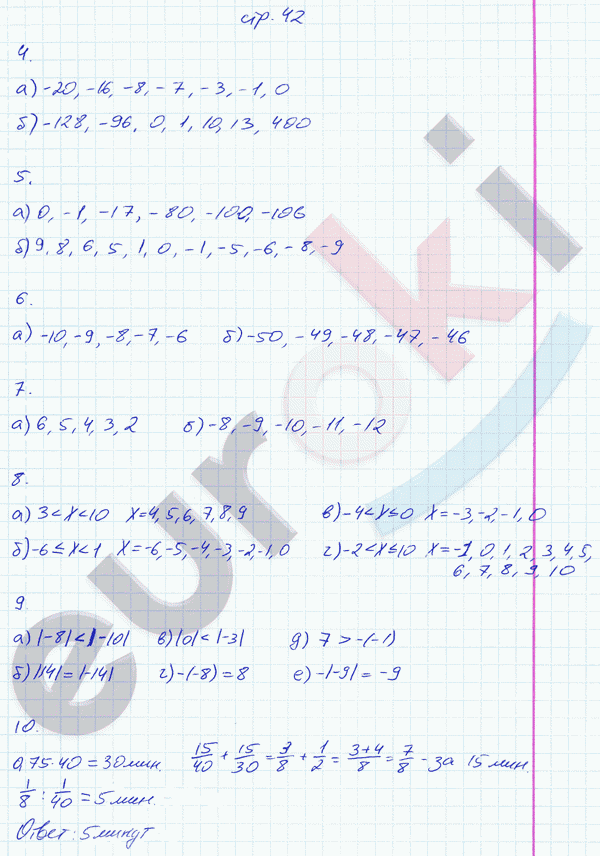 стр. 42
4.
а) -20, -16, -8, -7, -3, -1, 0
б) -128, -96, 0, 1, 10, 13, 400
5.
а) 0, -1, -17, -80, -100, -106
б) 9, 8, 6, 5, 1, 0, -1, -5, -6, -8, -9
6.
а) -10, -9, -8, -7, -6 б) -50, -49, -48, -47, -46
7.
а) 6, 5, 4, 3, 2 б) -8, -9, -10, -11, -12
8.
а) 3<x<10 x=4,5,6,7,8,9 в) -4<x≤0 x=-3,-2,-1,0
б) -6≤x<1 x=-6,-5,-4,-3,-2,-1,0 г) -2<x≤10 x=-1, 0, 1, 2, 3, 4, 5,
6, 7, 8, 9, 10
9.
а) |-8|<|-10| в) |0|<|-3| д) 7>-(-1)
б) |14|=|-14| г) -(-8)=8 е) -|-9|=-9
10.
0,75·40=30мин. 15/40+15/30=3/8+1/2=3+4/8=7/8 - за 15 мин.
1/8:1/40=5мин.
Ответ: 5минут
euroki